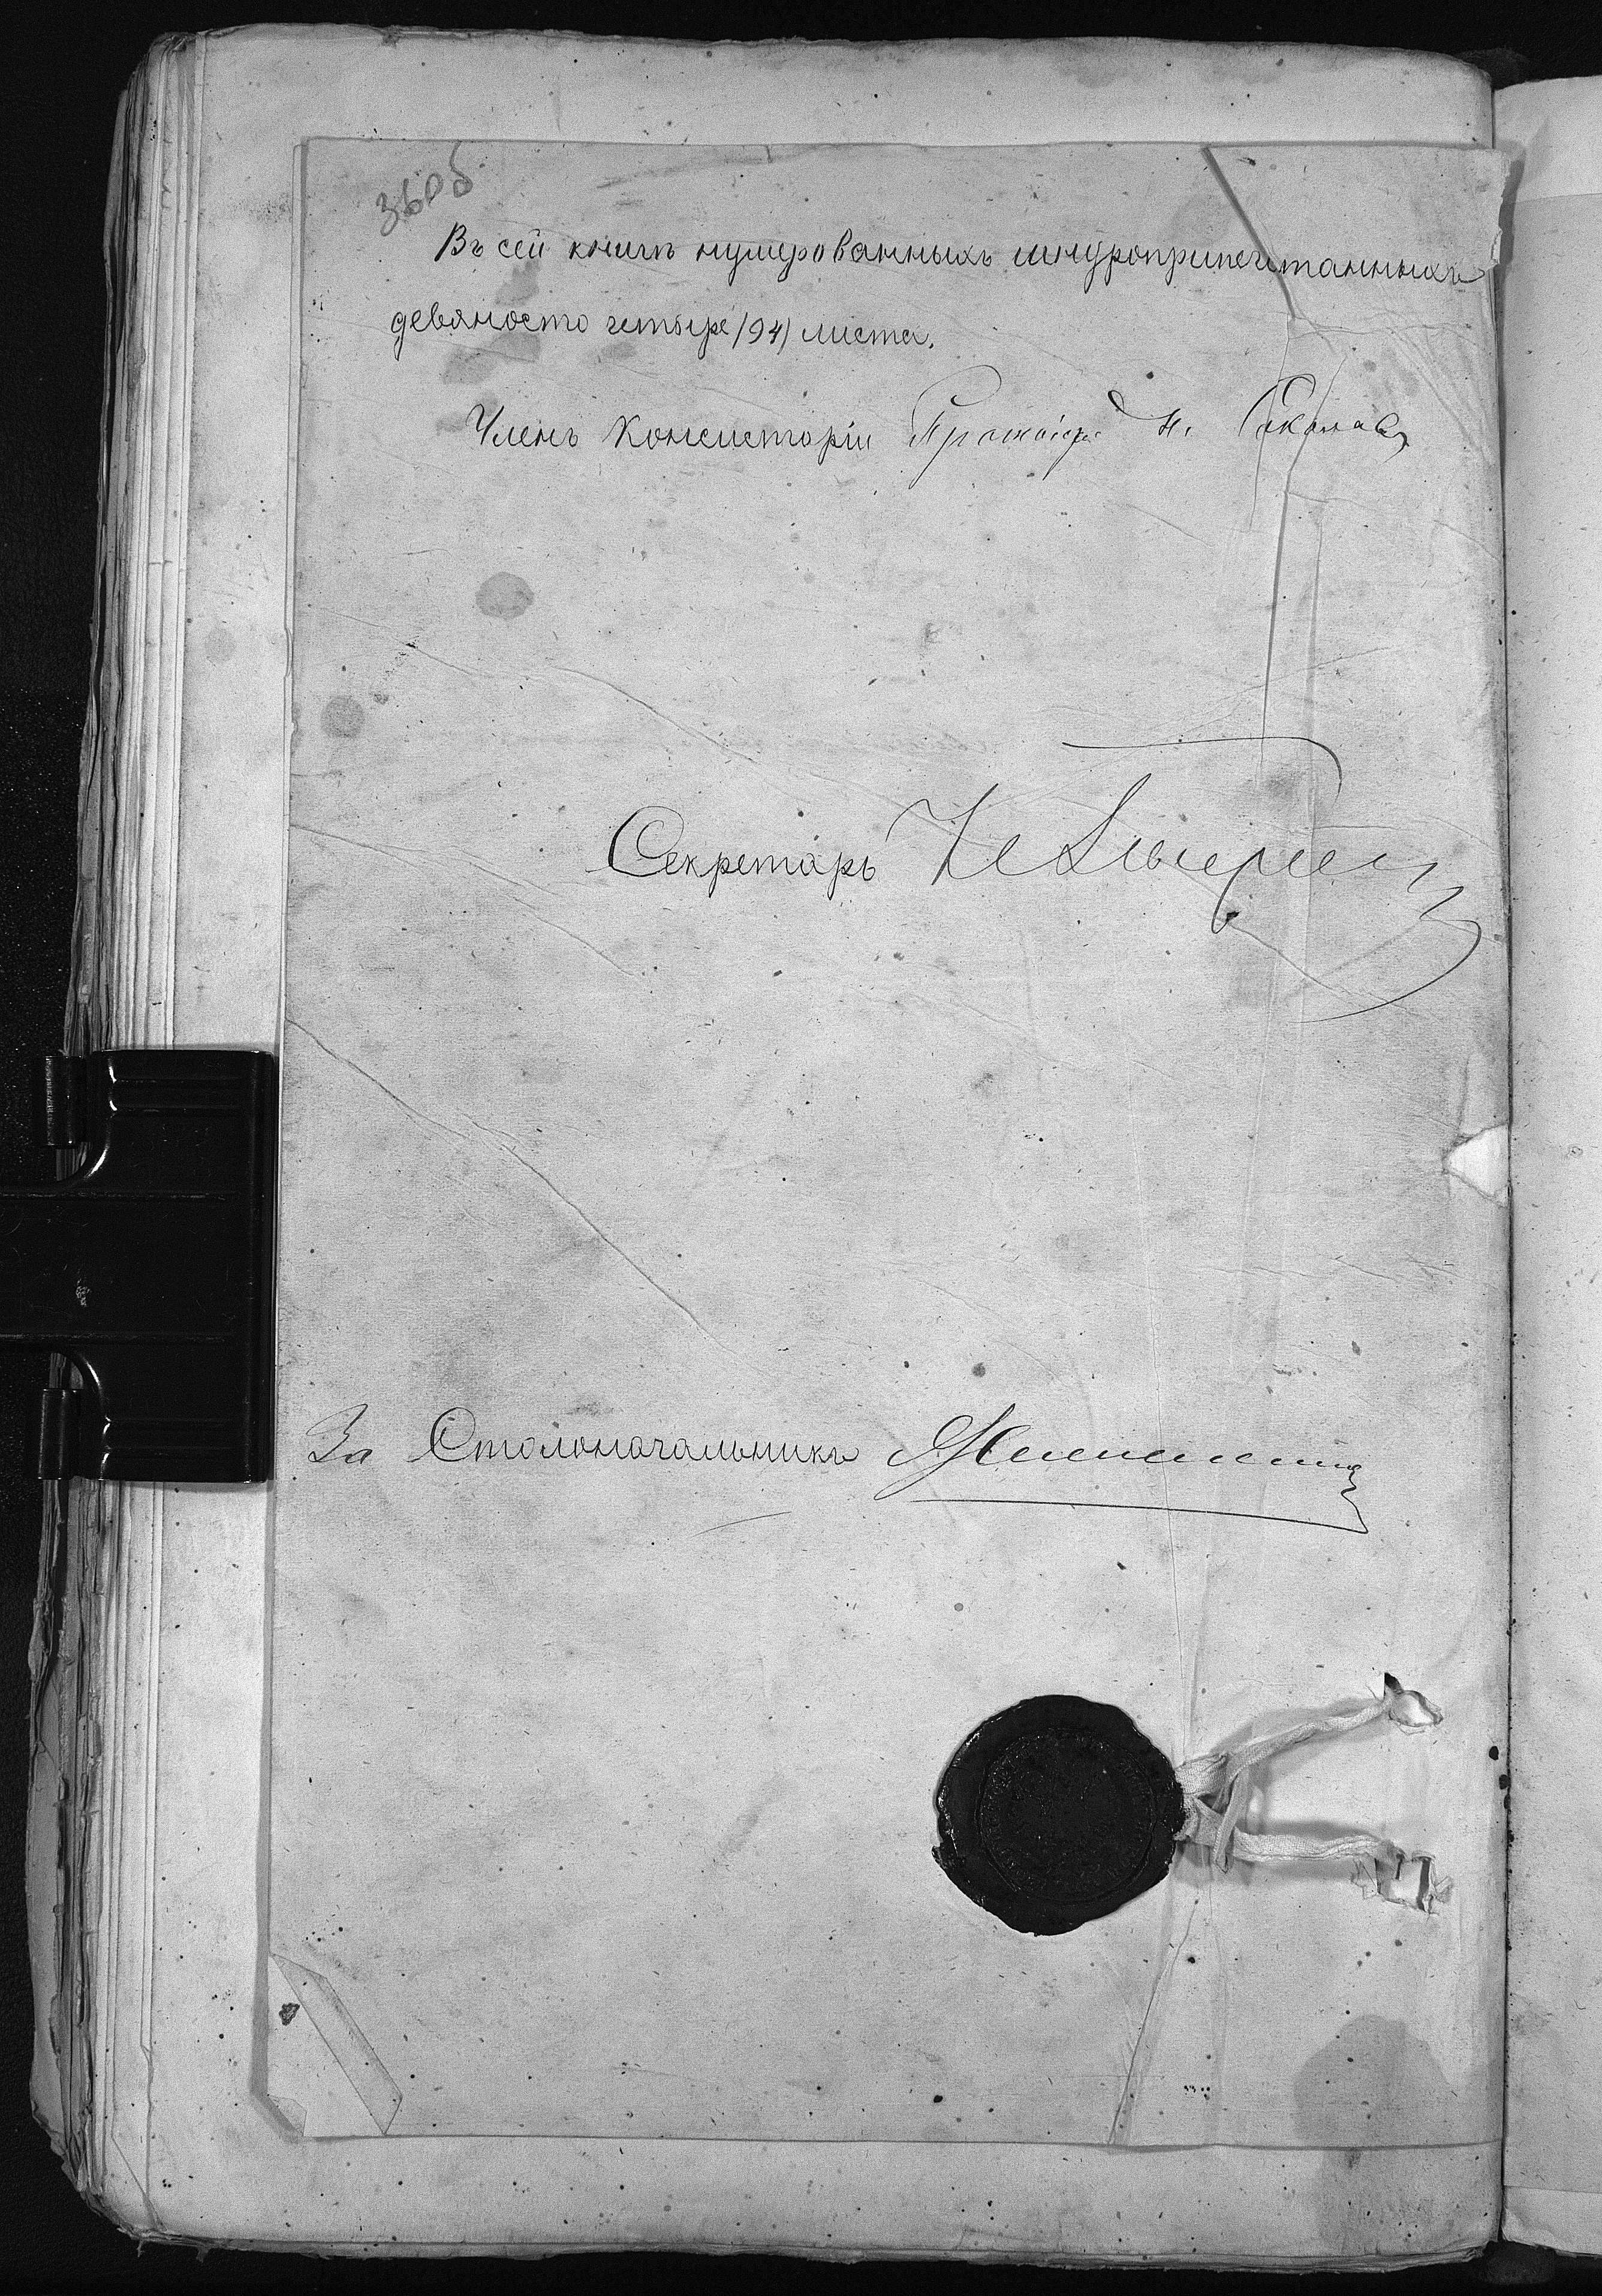 36об
Въ сей книгѣ нумерованныхъ шнуроприпечатанныхъ
девяносто четыре /94/ листа.
Членъ Консисторіи Протоіер. Н. Соколовъ
Секретарь
За Столоначальника